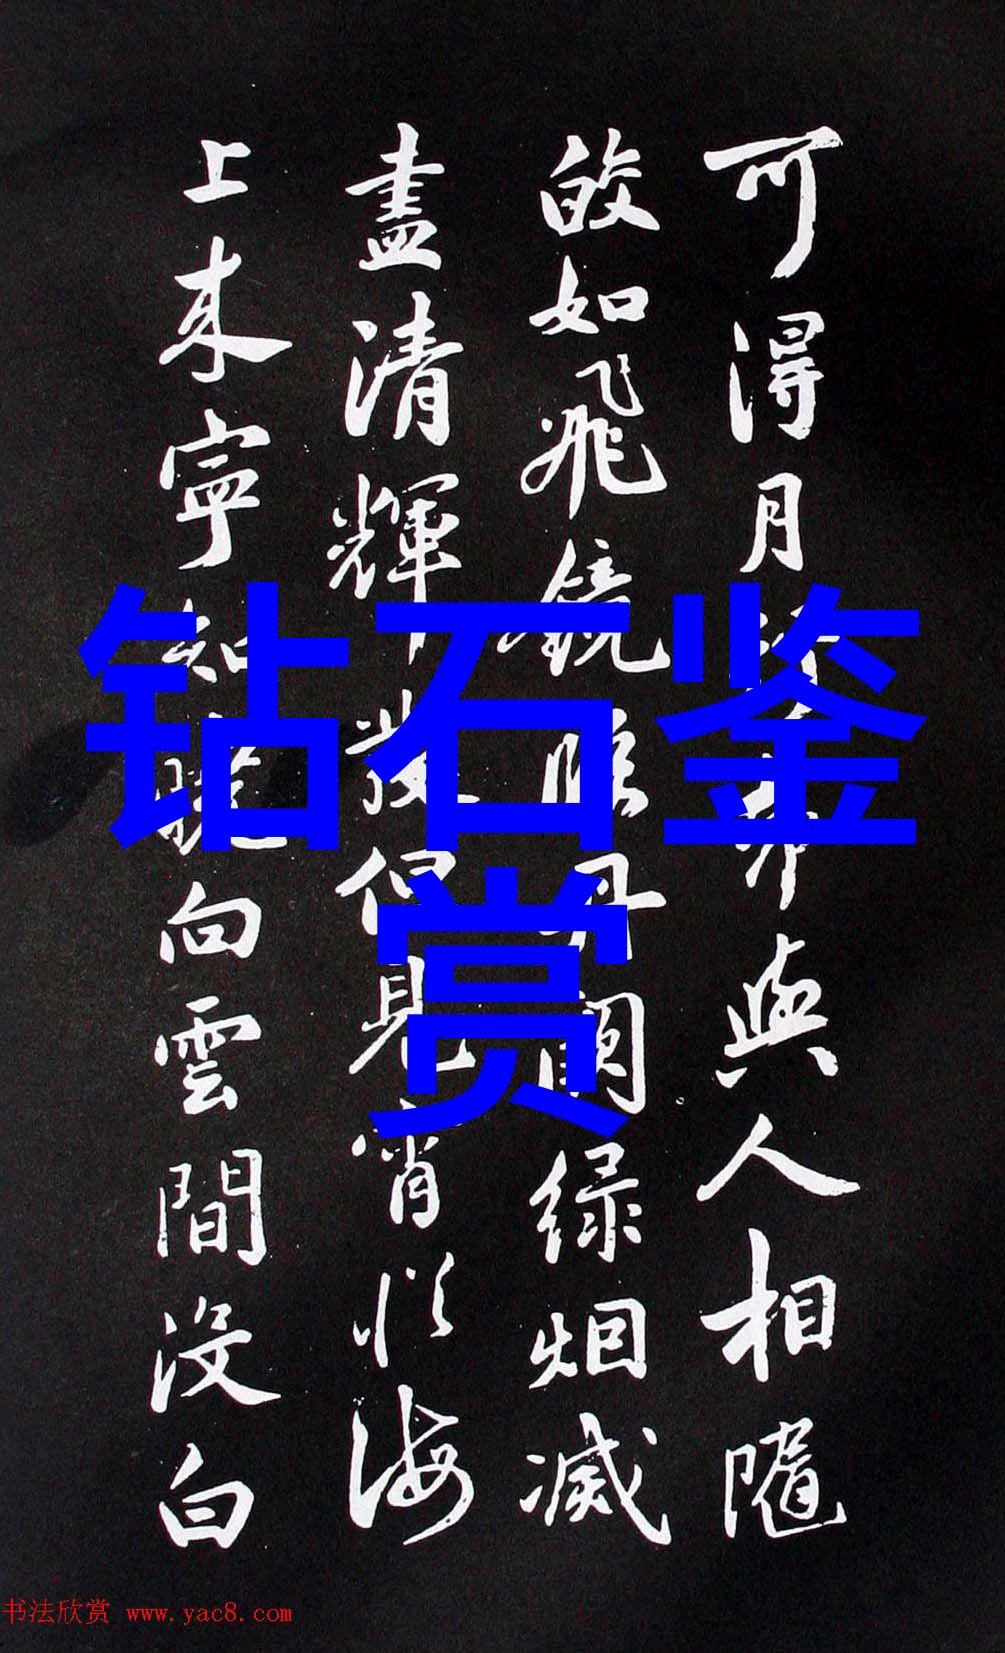 可得月行却與人相隨
皎如飛鏡臨丹闕綠烟滅
盡清輝發但見宵從海
上來寧知曉向雲間沒白
钻石鉴
赏
书法欣赏 www.yac8.com